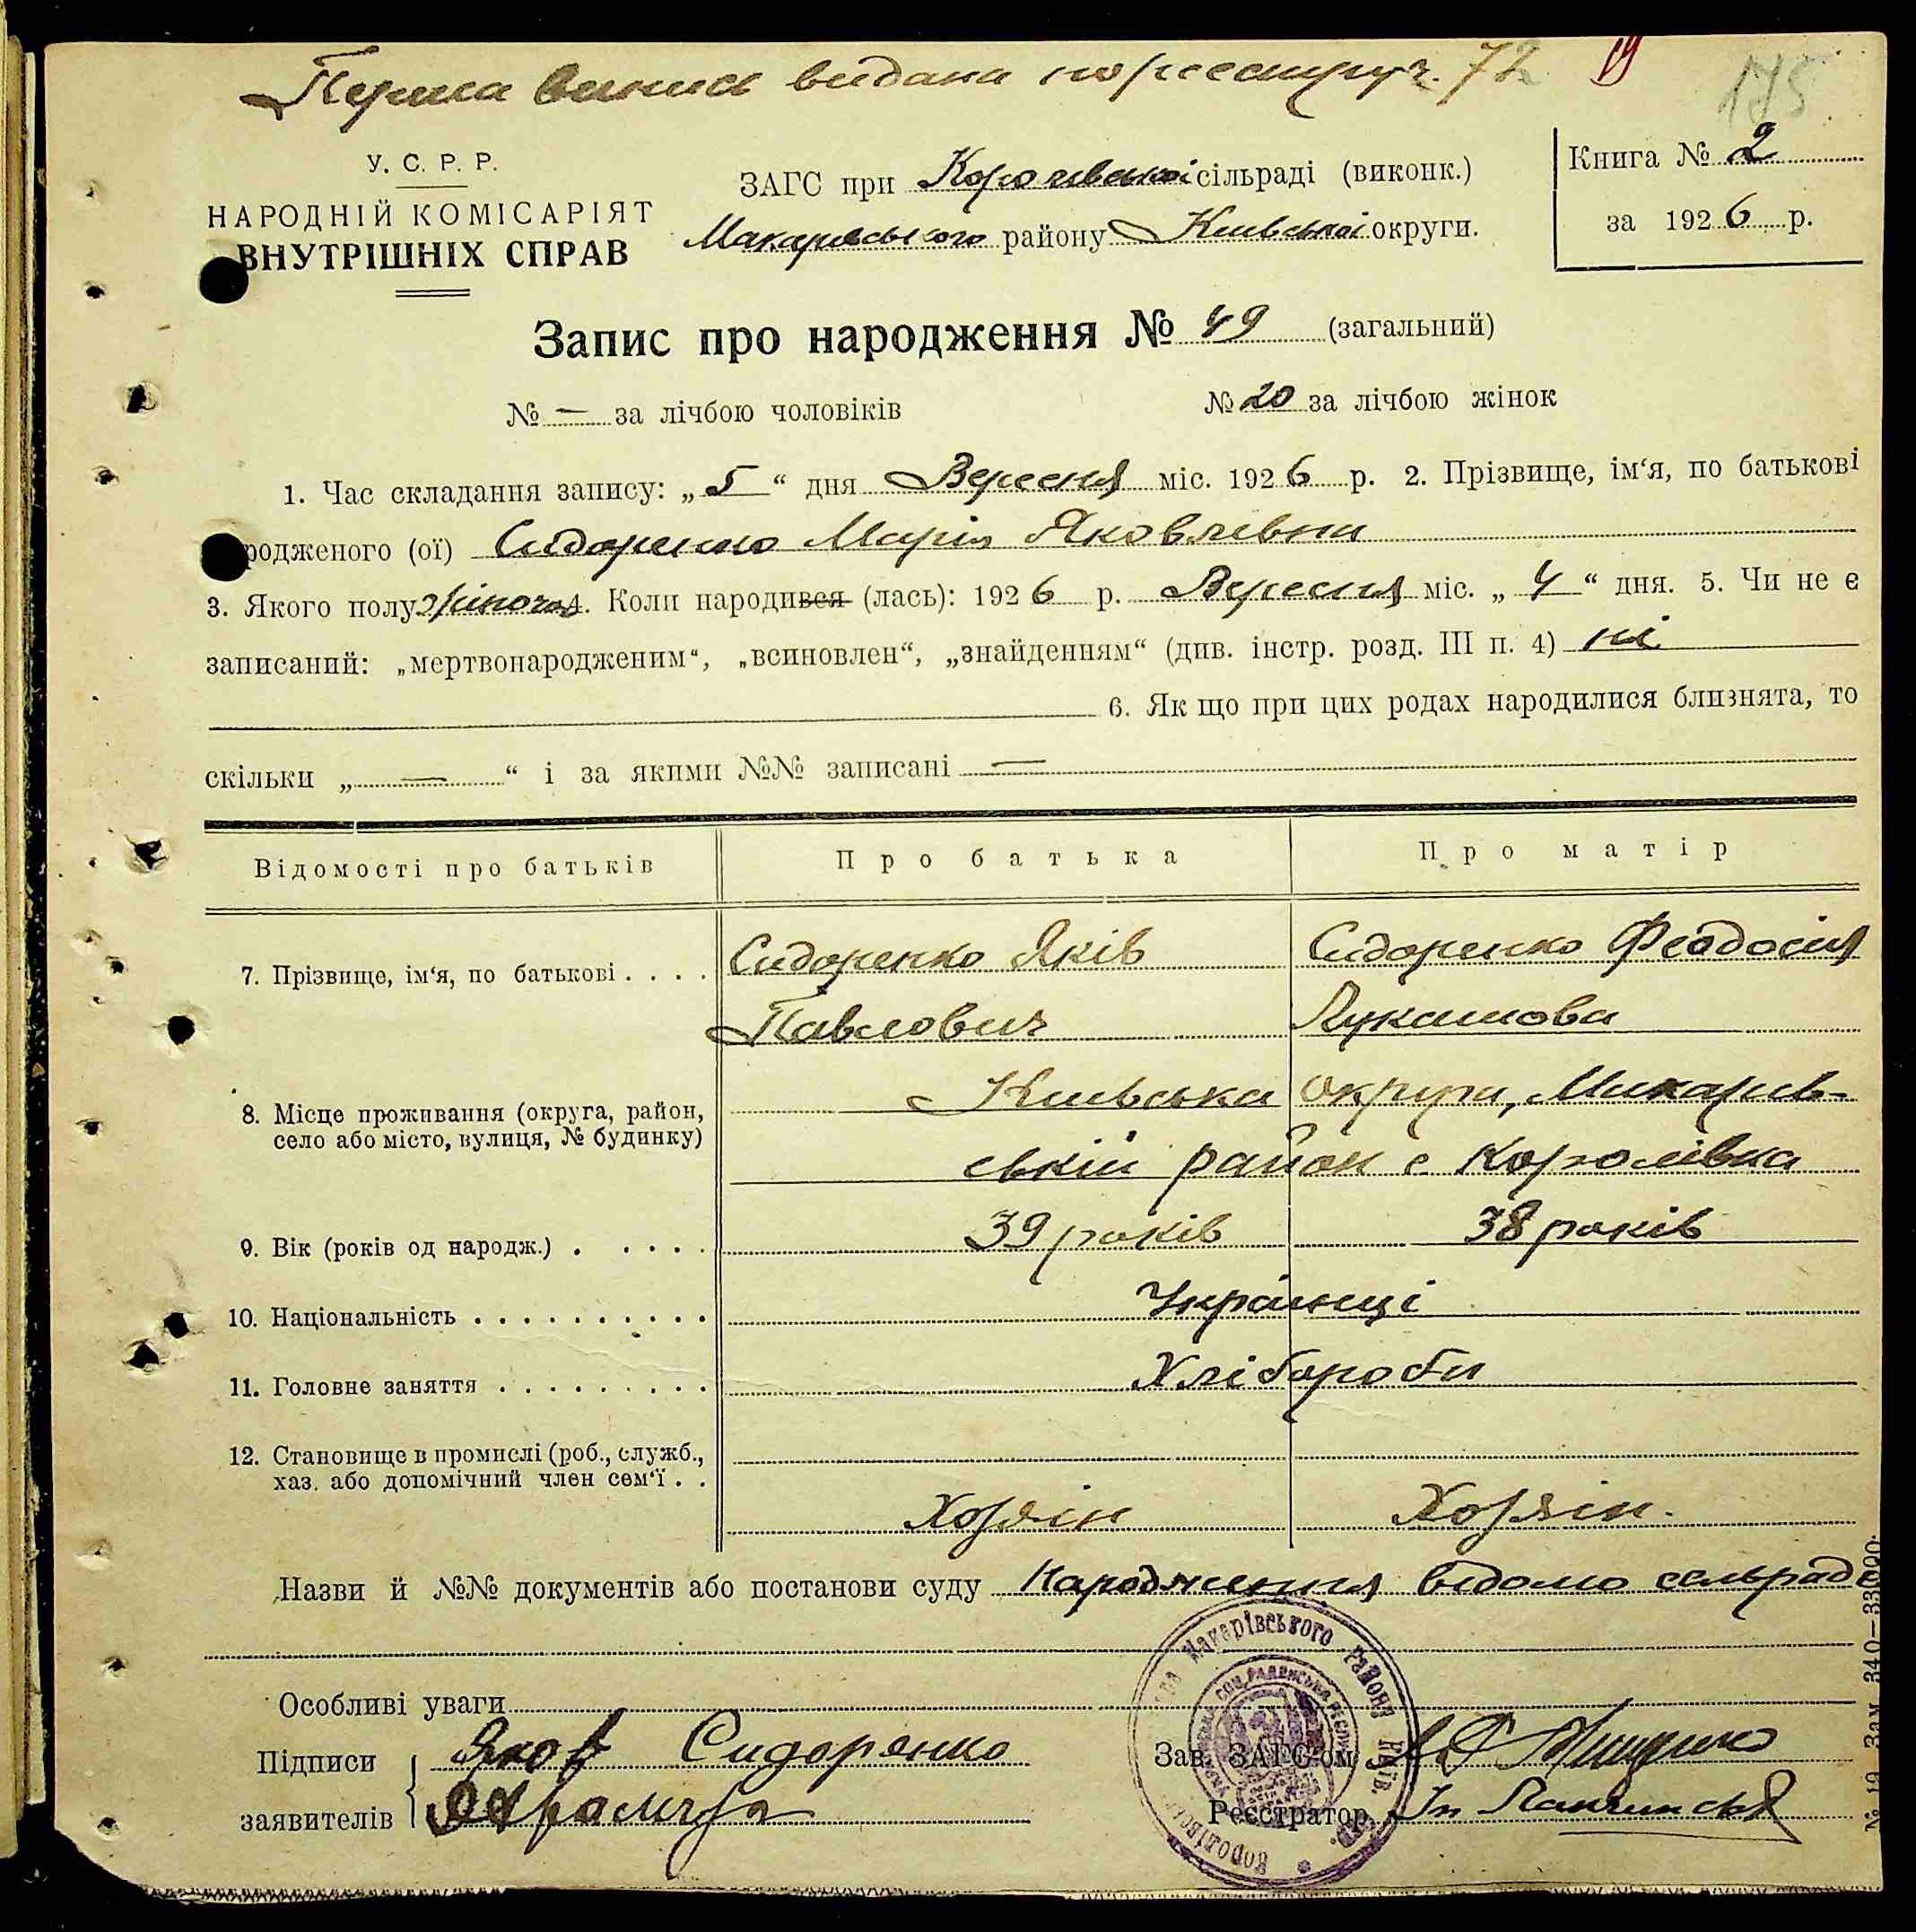 Перша випись видана по реєстру ч. 72
175
У. С. Р. Р.
НАРОДНІЙ КОМІСАРІЯТ
ВНУТРІШНІХ СПРАВ
ЗАГС при Королівській сільраді (виконк.)
Макарівського району Київської округи.
Книга № 2
за 1926 р.
Запис про народження № 49 (загальний)
№ — за лічбою чоловіків № 20 за лічбою жінок
1. Час складання запису: „5“ дня Вересня міс. 1926 р. 2. Прізвище, ім‘я, по батькові
родженого (ої) Сидоренко Марія Яковлевна
3. Якого полу жіноча 4. Коли народився (лась): 1926 р. Вересня міс. „4“ дня. 5. Чи не є
записаний: „мертвонародженим“, „всиновлен“, „знайденням“ (див. інстр. розд. III п. 4) ні
6. Як що при цих родах народилися близнята, то
скільки „—“ і за якими №№ записані —
Відомості про батьків Про батька Про матір
7. Прізвище, ім‘я, по батькові . . . . Сидоренко Яків Сидоренко Феодосия
Павлович Лукашова
8. Місце проживання (округа, район, Київська округи, Макарів-
село або місто, вулиця, № будинку) ській район с Королівка
9. Вік (років од народж.) . . . . . 39 років 38 років
10. Національність . . . . . . . . . . Українці
11. Головне заняття . . . . . . . . . Хлібороби
12. Становище в промислі (роб., служб.,
хаз. або допомічний член сем‘ї . . Хозяін Хозяін.
Назви й №№ документів або постанови суду Народження відомо сельраде
Особливі уваги
Підписи Яков Сидоренко Зав. ЗАГС‘ом
заявителів Реєстратор
Макарівського району Київ.
№ 19 Зам 340—33000.